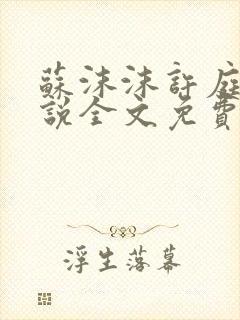 蘇沫沫許庭
說全文免費
浮生落幕